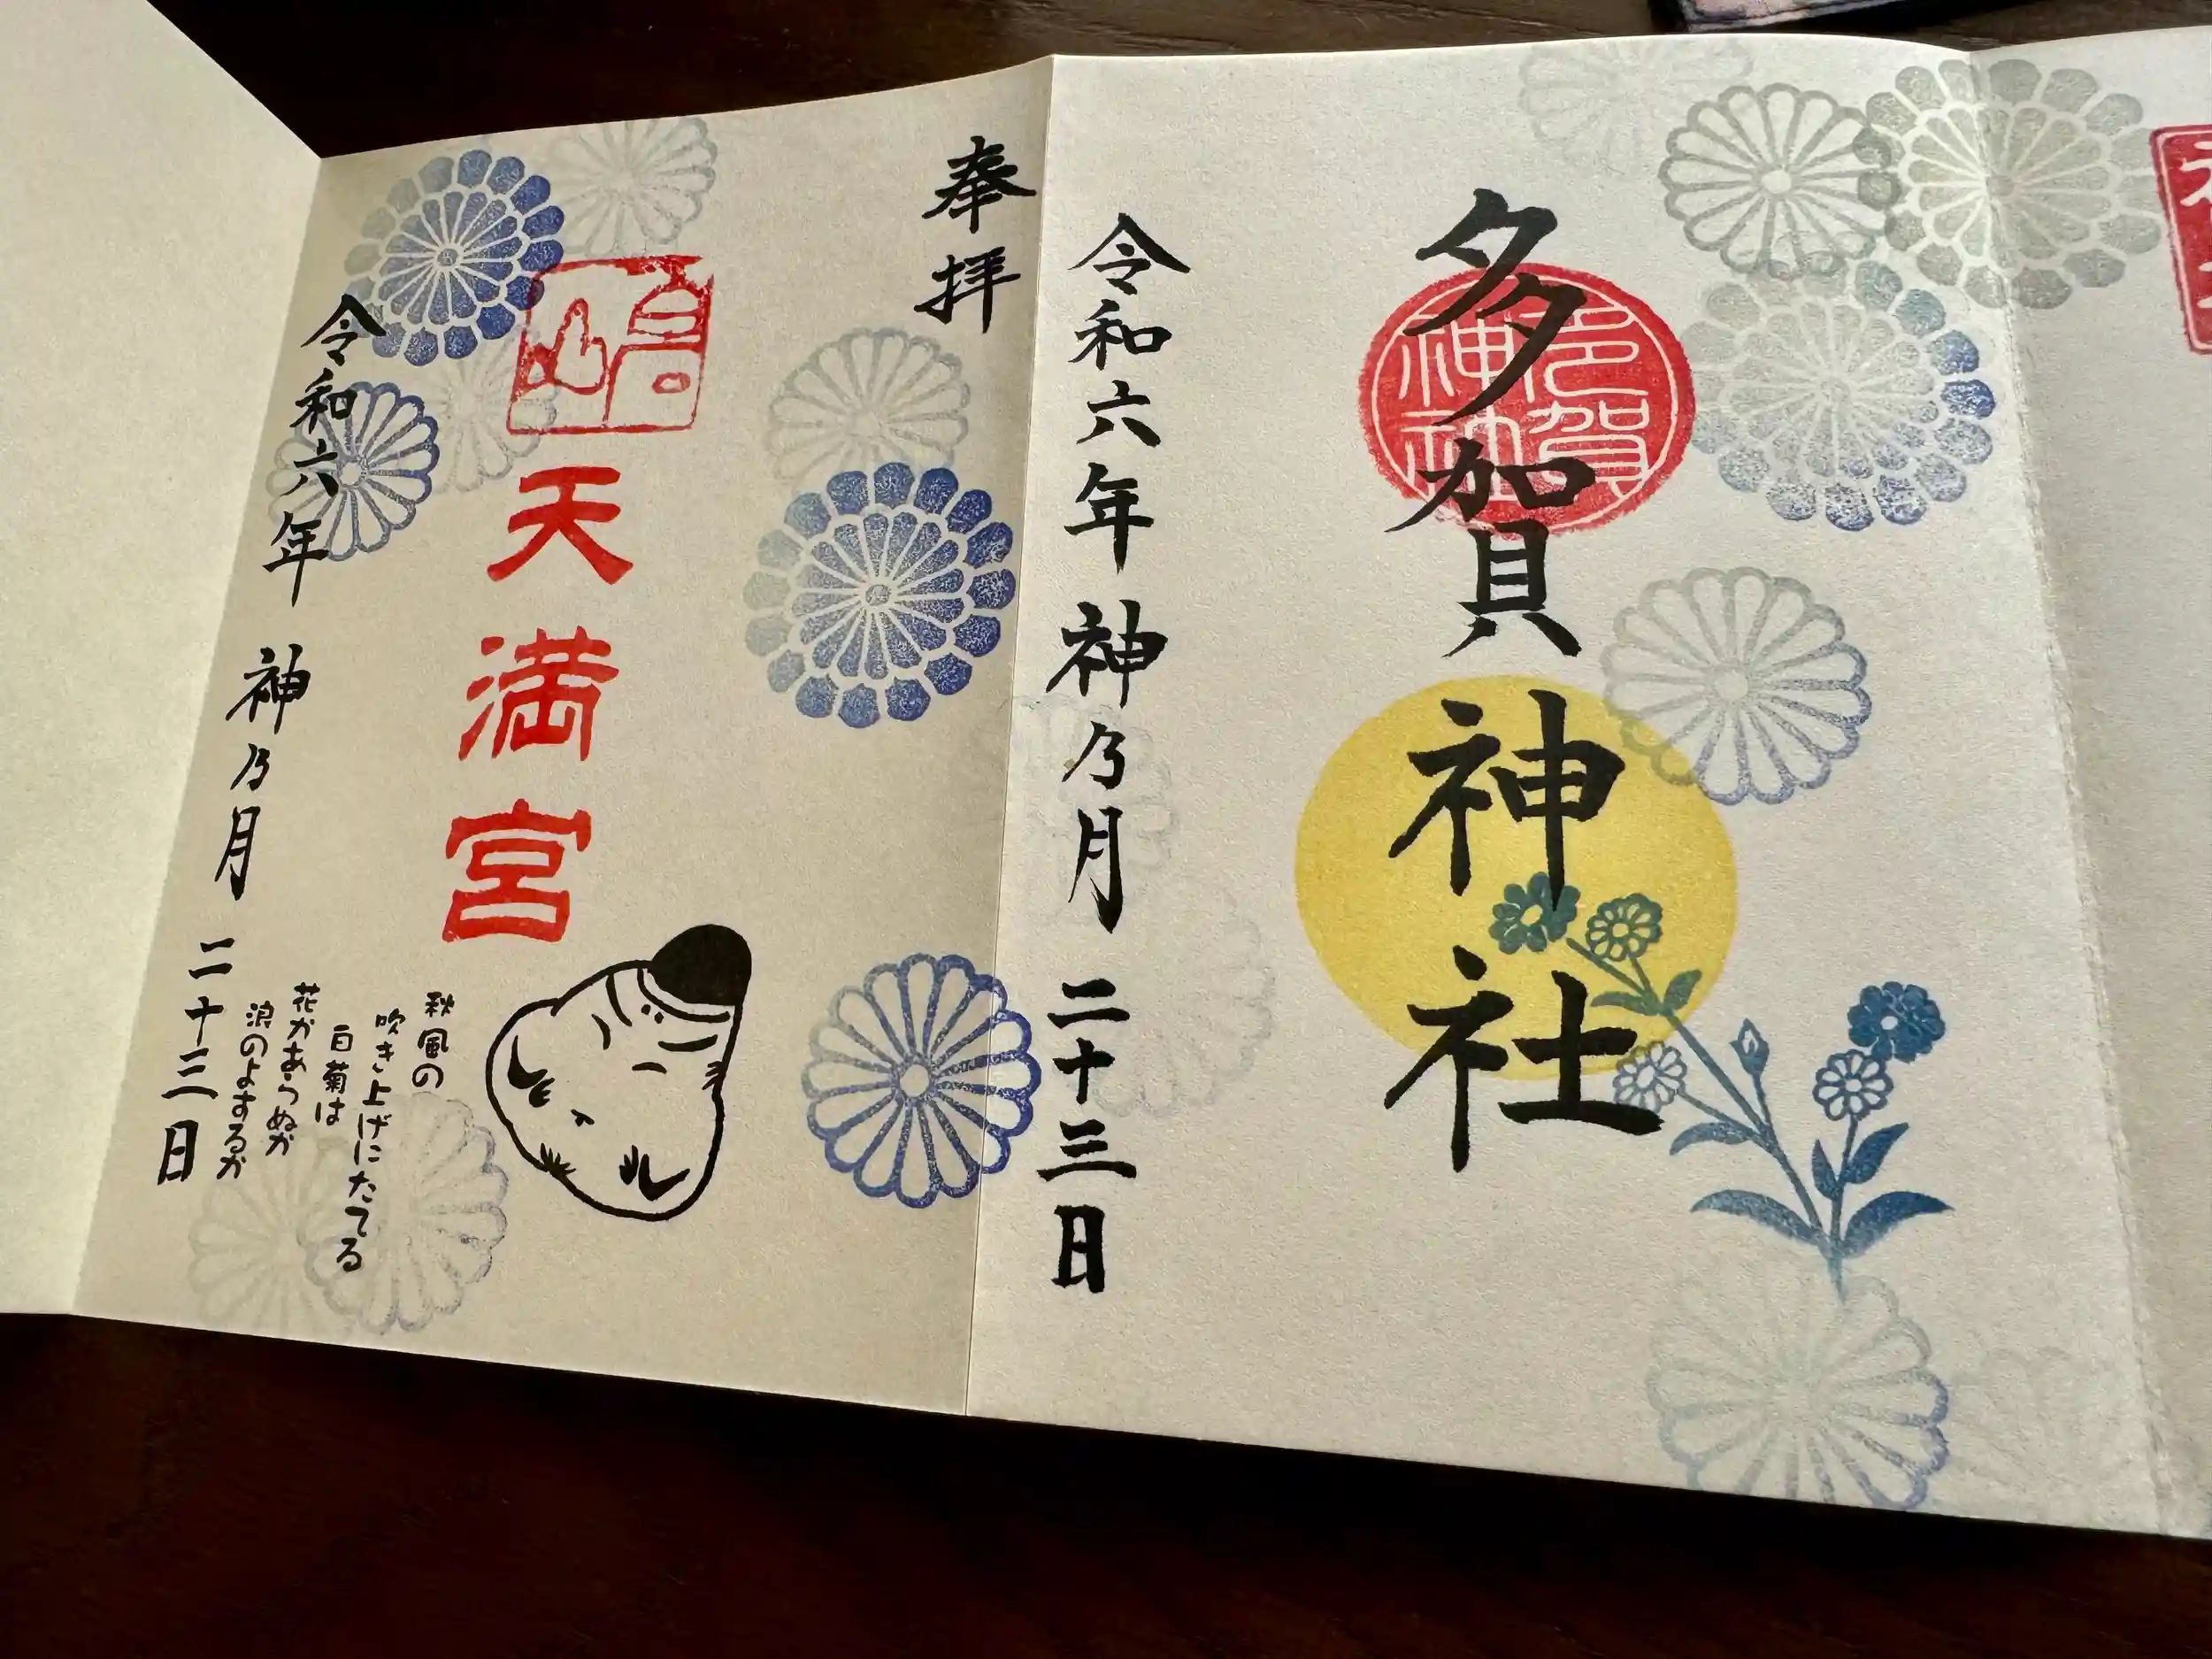 多賀神社
多賀
神社
令和六年 神乃月 二十三日
奉拝
天満宮
秋風の
吹き上げにたてる
白菊は
花かあらぬか
浪のよするか
令和六年 神乃月 二十三日